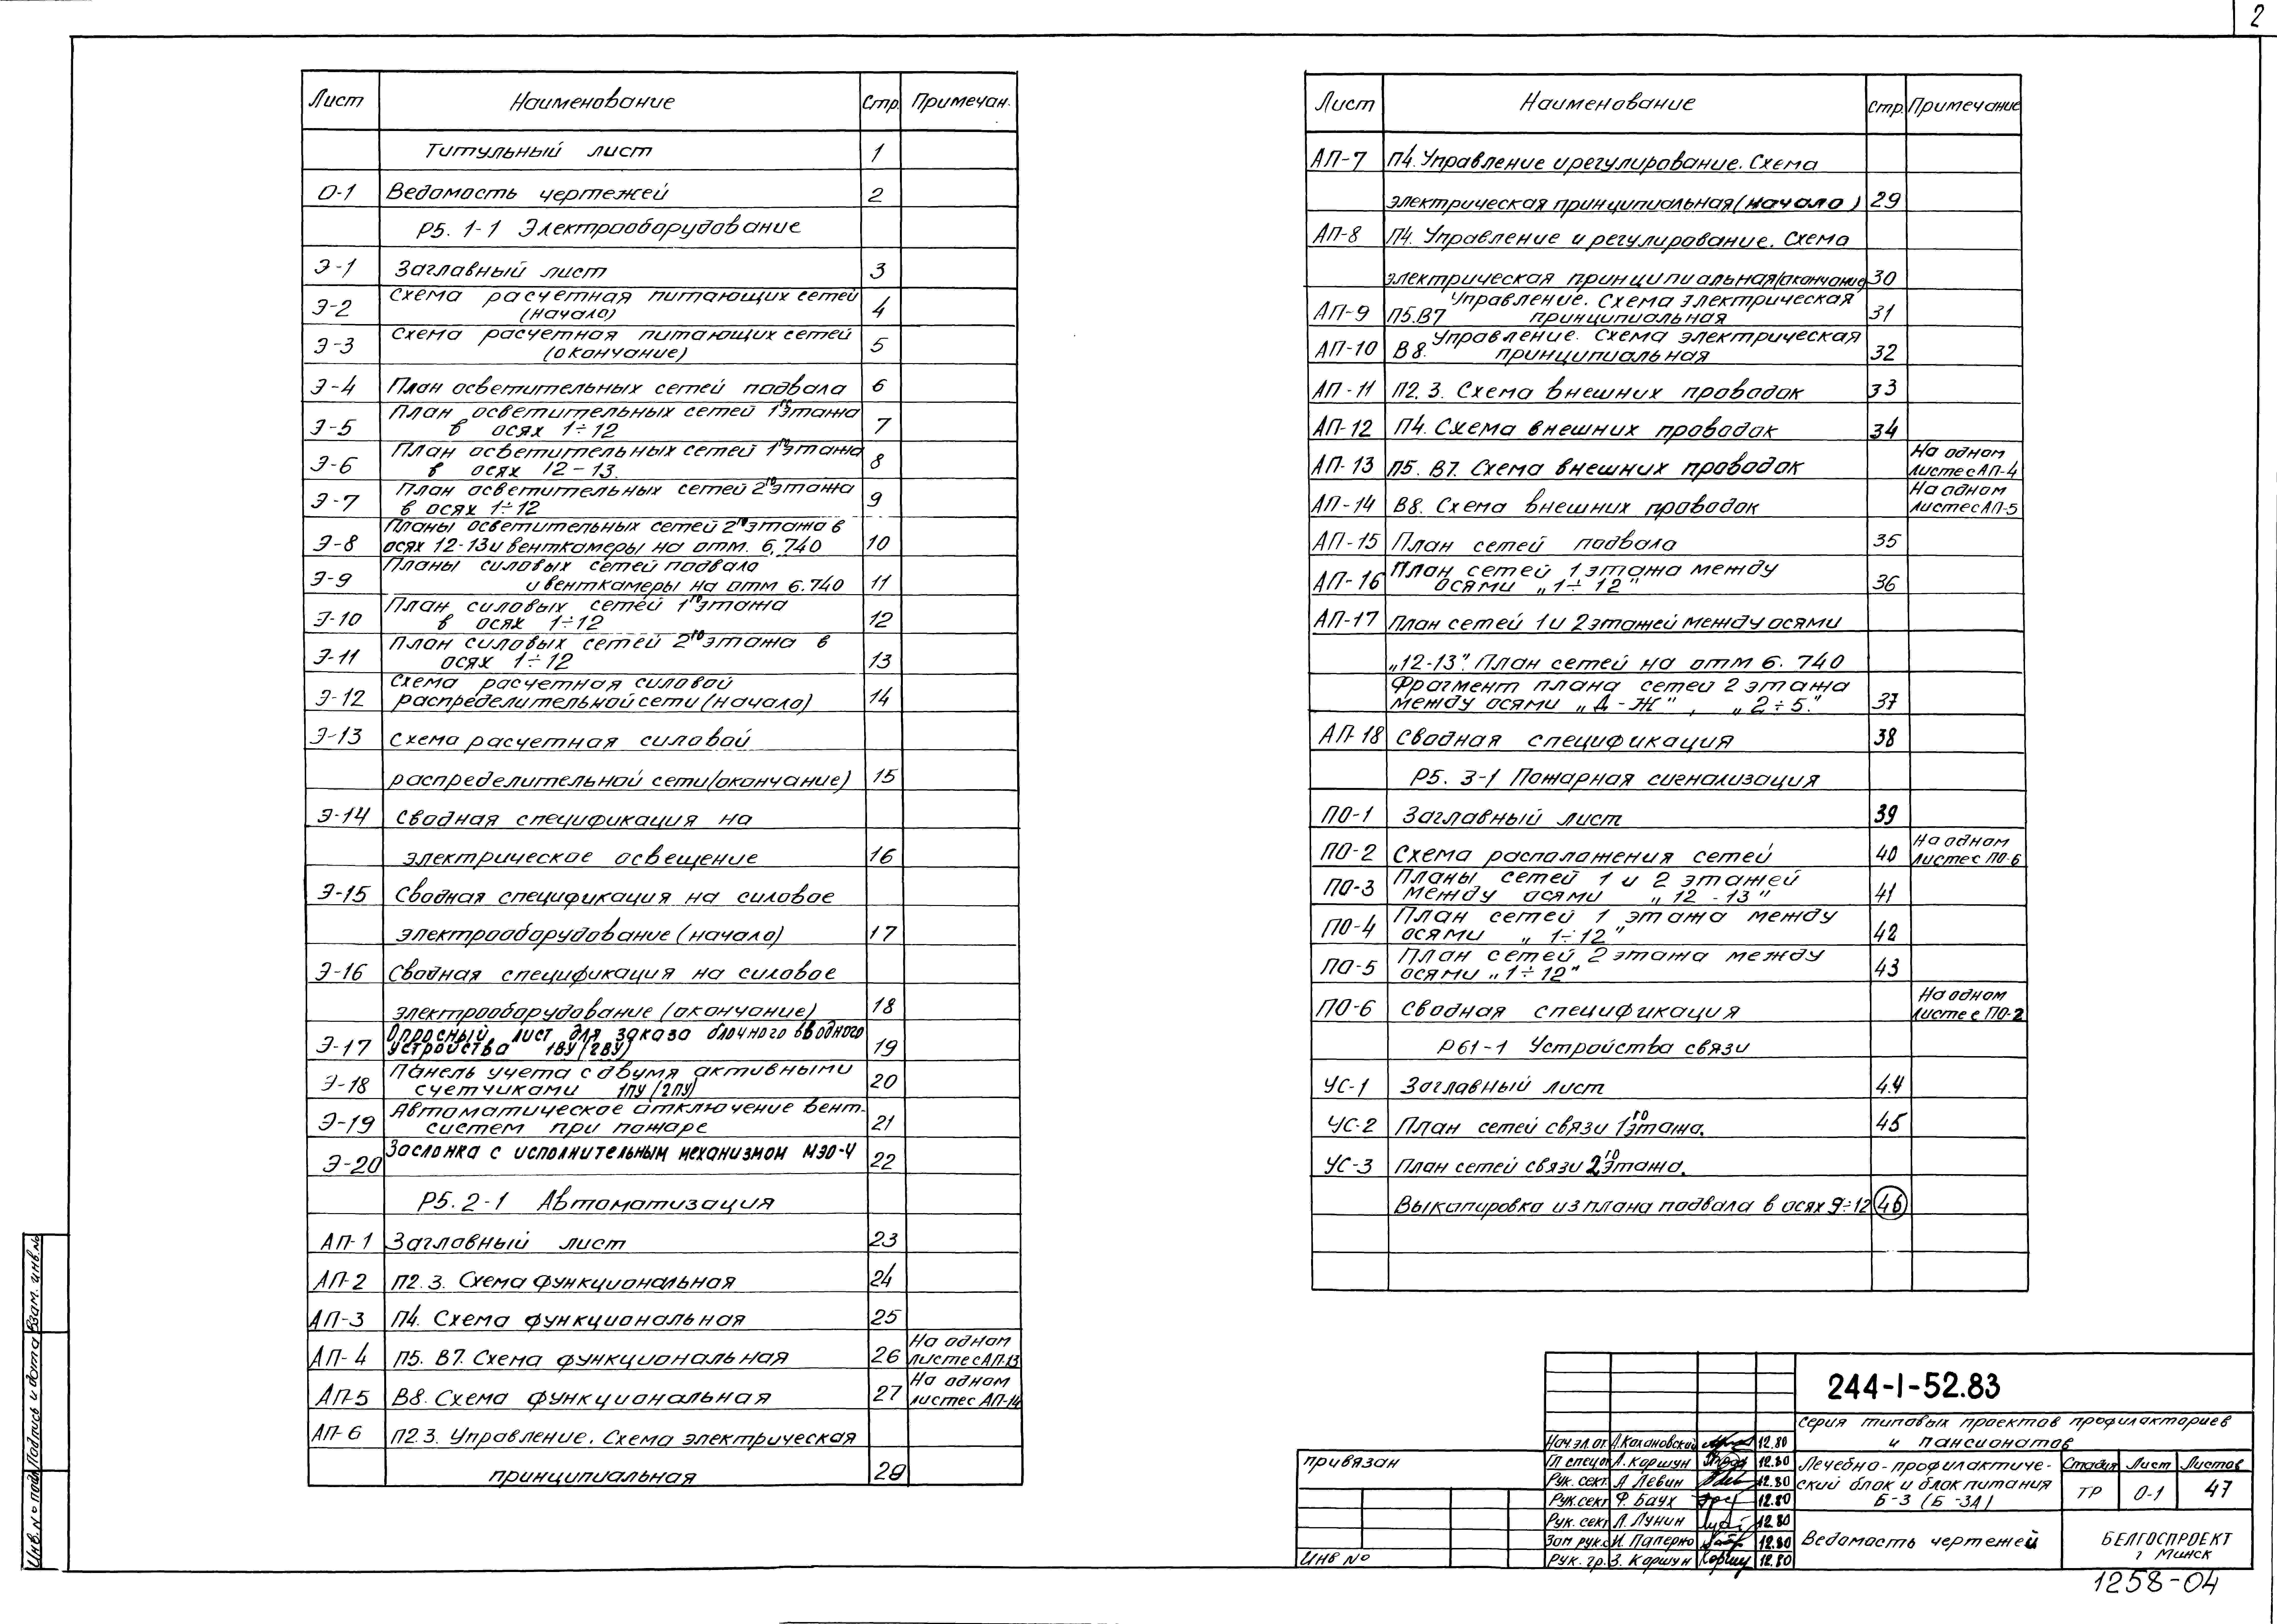 2
Лист Наименование Стр. Примечан.
Титульный лист 1
О-1 Ведомость чертежей 2
Р5. 1-1 Электрооборудование
Э-1 Заглавный лист 3
Э-2 Схема расчетная питающих сетей 4
(начало)
Э-3 Схема расчетная питающих сетей 5
(окончание)
Э-4 План осветительных сетей подвала 6
Э-5 План осветительных сетей 1го этажа 7
в осях 1÷12
Э-6 План осветительных сетей 1го этажа 8
в осях 12-13.
Э-7 План осветительных сетей 2го этажа 9
в осях 1÷12
Э-8 Планы осветительных сетей 2го этажа в 10
осях 12-13 и венткамеры на отм. 6.740
Э-9 Планы силовых сетей подвала 11
и венткамеры на отм 6.740
Э-10 План силовых сетей 1го этажа 12
в осях 1÷12
Э-11 План силовых сетей 2го этажа в 13
осях 1÷12
Э-12 Схема расчетная силовой 14
распределительной сети (начало)
Э-13 Схема расчетная силовой
распределительной сети (окончание) 15
Э-14 Сводная спецификация на
электрическое освещение 16
Э-15 Сводная спецификация на силовое
электрооборудование (начало) 17
Э-16 Сводная спецификация на силовое
электрооборудование (окончание) 18
Э-17 Опросный лист для заказа блочного вводного 19
устройства 1ВУ (2ВУ)
Э-18 Панель учета с двумя активными 20
счетчиками 1ПУ (2ПУ)
Э-19 Автоматическое отключение вент- 21
систем при пожаре
Э-20 Заслонка с исполнительным механизмом МЭО-4 22
Р5. 2-1 Автоматизация
АП-1 Заглавный лист 23
АП-2 П2.3. Схема функциональная 24
АП-3 П4. Схема функциональная 25
АП-4 П5. В7. Схема функциональная 26 На одном
листе с АП-13
АП-5 В8. Схема функциональная 27 На одном
листе с АП-14
АП-6 П2.3. Управление. Схема электрическая
принципиальная 28
Лист Наименование Стр. Примечание
АП-7 П4. Управление и регулирование. Схема
электрическая принципиальная (начало) 29
АП-8 П4. Управление и регулирование. Схема
электрическая принципиальная (окончание) 30
АП-9 П5.В7 Управление. Схема электрическая 31
принципиальная
АП-10 В8. Управление. Схема электрическая 32
принципиальная
АП-11 П2.3. Схема внешних проводок 33
АП-12 П4. Схема внешних проводок 34
АП-13 П5. В7. Схема внешних проводок На одном
листе с АП-4
АП-14 В8. Схема внешних проводок На одном
листе с АП-5
АП-15 План сетей подвала 35
АП-16 План сетей 1 этажа между 36
осями „1÷12"
АП-17 План сетей 1 и 2 этажей между осями
„12-13". План сетей на отм 6.740
Фрагмент плана сетей 2 этажа
между осями „Д-Ж", „2÷5." 37
АП-18 Сводная спецификация 38
Р5. 3-1 Пожарная сигнализация
ПО-1 Заглавный лист 39
ПО-2 Схема расположения сетей 40 На одном
листе с ПО-6
ПО-3 Планы сетей 1 и 2 этажей 41
между осями „12-13"
ПО-4 План сетей 1 этажа между 42
осями „1÷12"
ПО-5 План сетей 2 этажа между 43
осями „1÷12"
ПО-6 Сводная спецификация На одном
листе с ПО-2
Р61-1 Устройства связи
УС-1 Заглавный лист 44
УС-2 План сетей связи 1го этажа. 45
УС-3 План сетей связи 2го этажа.
Выкопировка из плана подвала в осях 9÷12 46
244-1-52.83
серия типовых проектов профилакториев
и пансионатов
Лечебно-профилактиче-
ский блок и блок питания
Б-3 (Б-3А)
Стадия Лист Листов
ТР О-1 47
Ведомость чертежей
БЕЛГОСПРОЕКТ
г Минск
Нач.эл.от. А.Кохановский 12.80
Гл спец. Л. Коршун 12.80
Рук. сект. Л Левин 12.80
Рук.сект Ф. Баух 12.80
Рук. сект Л. Лунин 12.80
Зам рук.с И. Паперно 12.80
Рук. гр. З. Коршун 12.80
привязан
Инв №
1258-04
Инв. № подл. Подпись и дата Взам. инв.№